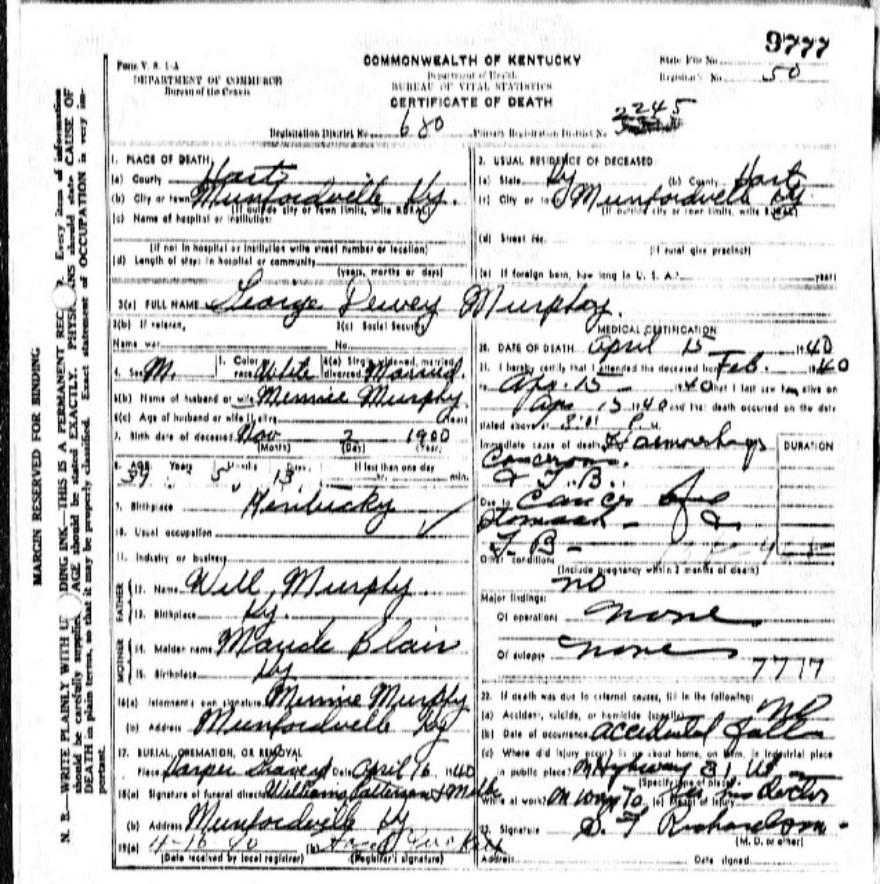 9777
Form V. S. 1-A
DEPARTMENT OF COMMERCE
Bureau of the Census
COMMONWEALTH OF KENTUCKY
Department of Health
BUREAU OF VITAL STATISTICS
CERTIFICATE OF DEATH
State File No.
Registrar's No. 50
Registration District No. 680 Primary Registration District No. 2245
MARGIN RESERVED FOR BINDING
1. PLACE OF DEATH
(a) County Hart
(b) City or town Munfordville Ky.
(If outside city or town limits, write RURAL)
(c) Name of hospital or institution:
(If not in hospital or institution write street number or location)
(d) Length of stay: in hospital or community
(years, months or days)
2. USUAL RESIDENCE OF DECEASED:
(a) State Ky (b) County Hart
(c) City or town Munfordville Ky
(If outside city or town limits, write RURAL)
(d) Street No.
(If rural give precinct)
(e) If foreign born, how long in U. S. A.? years
3(a) FULL NAME George Dewey Murphy.
3(b) If veteran, 3(c) Social Security
Name war No.
4. Sex M. 5. Color or race White 6(a) Single, widowed, married, divorced Married.
6(b) Name of husband or wife Minnie Murphy
6(c) Age of husband or wife if alive years
7. Birth date of deceased Nov 2 1900
(Month) (Day) (Year)
8. AGE Years Months Days If less than one day
39 5 13 hr. min.
9. Birthplace Kentucky
10. Usual occupation
11. Industry or business
FATHER
12. Name Will Murphy.
13. Birthplace Ky.
MOTHER
14. Maiden name Maude Blair
15. Birthplace Ky
16(a) Informant's own signature Minnie Murphy
(b) Address Munfordville Ky
17. BURIAL, CREMATION, OR REMOVAL
Place Date April 16, 1940
18(a) Signature of funeral director Williams
(b) Address Munfordville Ky
19(a) 4-16-40 (b)
(Date received by local registrar) (Registrar's signature)
MEDICAL CERTIFICATION
20. DATE OF DEATH April 15 1940
21. I hereby certify that I attended the deceased from Feb. 1940
to Apr. 15 1940 that I last saw him alive on
Apr 15 1940 and that death occurred on the date
stated above
Immediate cause of death Haemorrhage DURATION
& T. B.
Due to Cancer
& T. B -
Other conditions
(Include pregnancy within 3 months of death)
no
Major findings:
Of operations none
Of autopsy none
7717
22. If death was due to external causes, fill in the following:
(a) Accident, suicide, or homicide (specify) No
(b) Date of occurrence accidental fall
(c) Where did injury occur? in or about home, on farm, in industrial place
in public place? on Highway 31
(Specify type of place)
While at work? on way to (e) Means of injury
23. Signature S. F Richardson
(M. D. or other)
Address Date signed